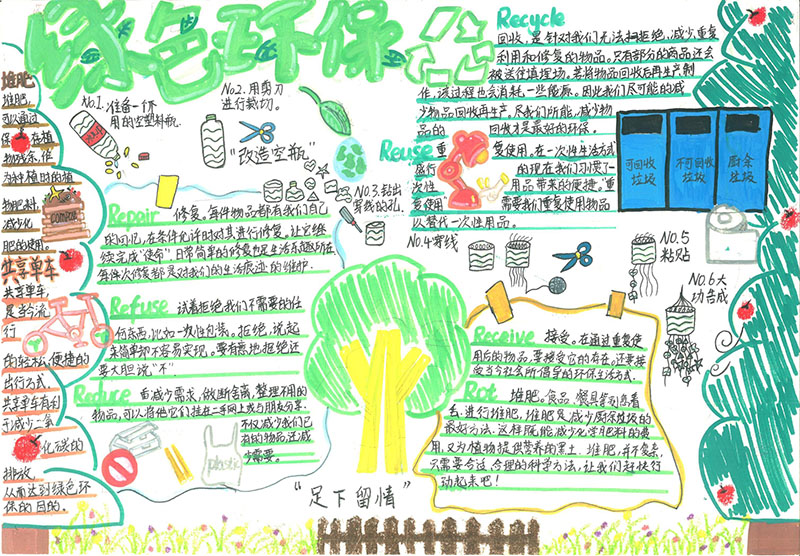 绿色环保
堆肥
堆肥,
可以通过
保存在植
物残余,作
为种植时的植
物肥料,
减少化
肥的使用。
COMPOST
共享单车
共享单车
是合流
行
的轻松,便捷的
出行方式,
共享单车有利
于减少二氧
化碳的
排放,
从而达到绿色环
保的目的。
No.1. 准备一个不
用的空塑料瓶.
No.2. 用剪刀
进行裁切。
"改造空瓶"
NO.3.钻出
穿线的孔。
NO.4.穿线
NO.5
粘贴
NO.6大
功告成
Recycle
回收,是针对我们无法拒绝,减少重复
利用和修复的物品。只有部分的商品还会
被送往填埋场。若将物品回收后再生产制
作,该过程也会消耗一些能源。因此我们尽可能的减
少物品回收再生产,尽我们所能,减少物
品的回收才是最好的环保。
Reuse
重复使用。在一次性生活方式
盛行的现在我们习惯了一
次性用品带来的便捷。"重
复使用"需要我们重复使用物品
以替代一次性用品。
可回收
垃圾
不可回收
垃圾
厨余
垃圾
Repair
修复。每件物品都有我们自己
的回忆,在条件允许时对其进行修复,让它继
续完成"使命"日常简单的修复也是生活乐趣所在
每件次修复都是对我们的生活痕迹的维护.
Refuse
试着拒绝我们不需要的任
何东西,比如一次性包装。拒绝,说起
来简单却不容易实现。要有意地拒绝还
要大胆说"不"
Reduce
自减少需求,做断舍离,整理不用的
物品,可以将他它们挂在二手网上或与朋友分享.
不仅减少我们已
有的物品还减
少需要。
plastic
"足下留情"
Receive
接受。在通过重复使
用后的物品,要接受它的存在,还要接
受当今社会所倡导的环保生活方式.
Rot
堆肥。食品,餐具等到为着
去,进行堆肥,堆肥是减少厨余垃圾的
最好方法.这样既能减少化学肥料的费
用,又为植物提供营养的黑土.堆肥,并不复杂,
只需要合适,合理的科学方法,让我们赶快行
动起来吧!